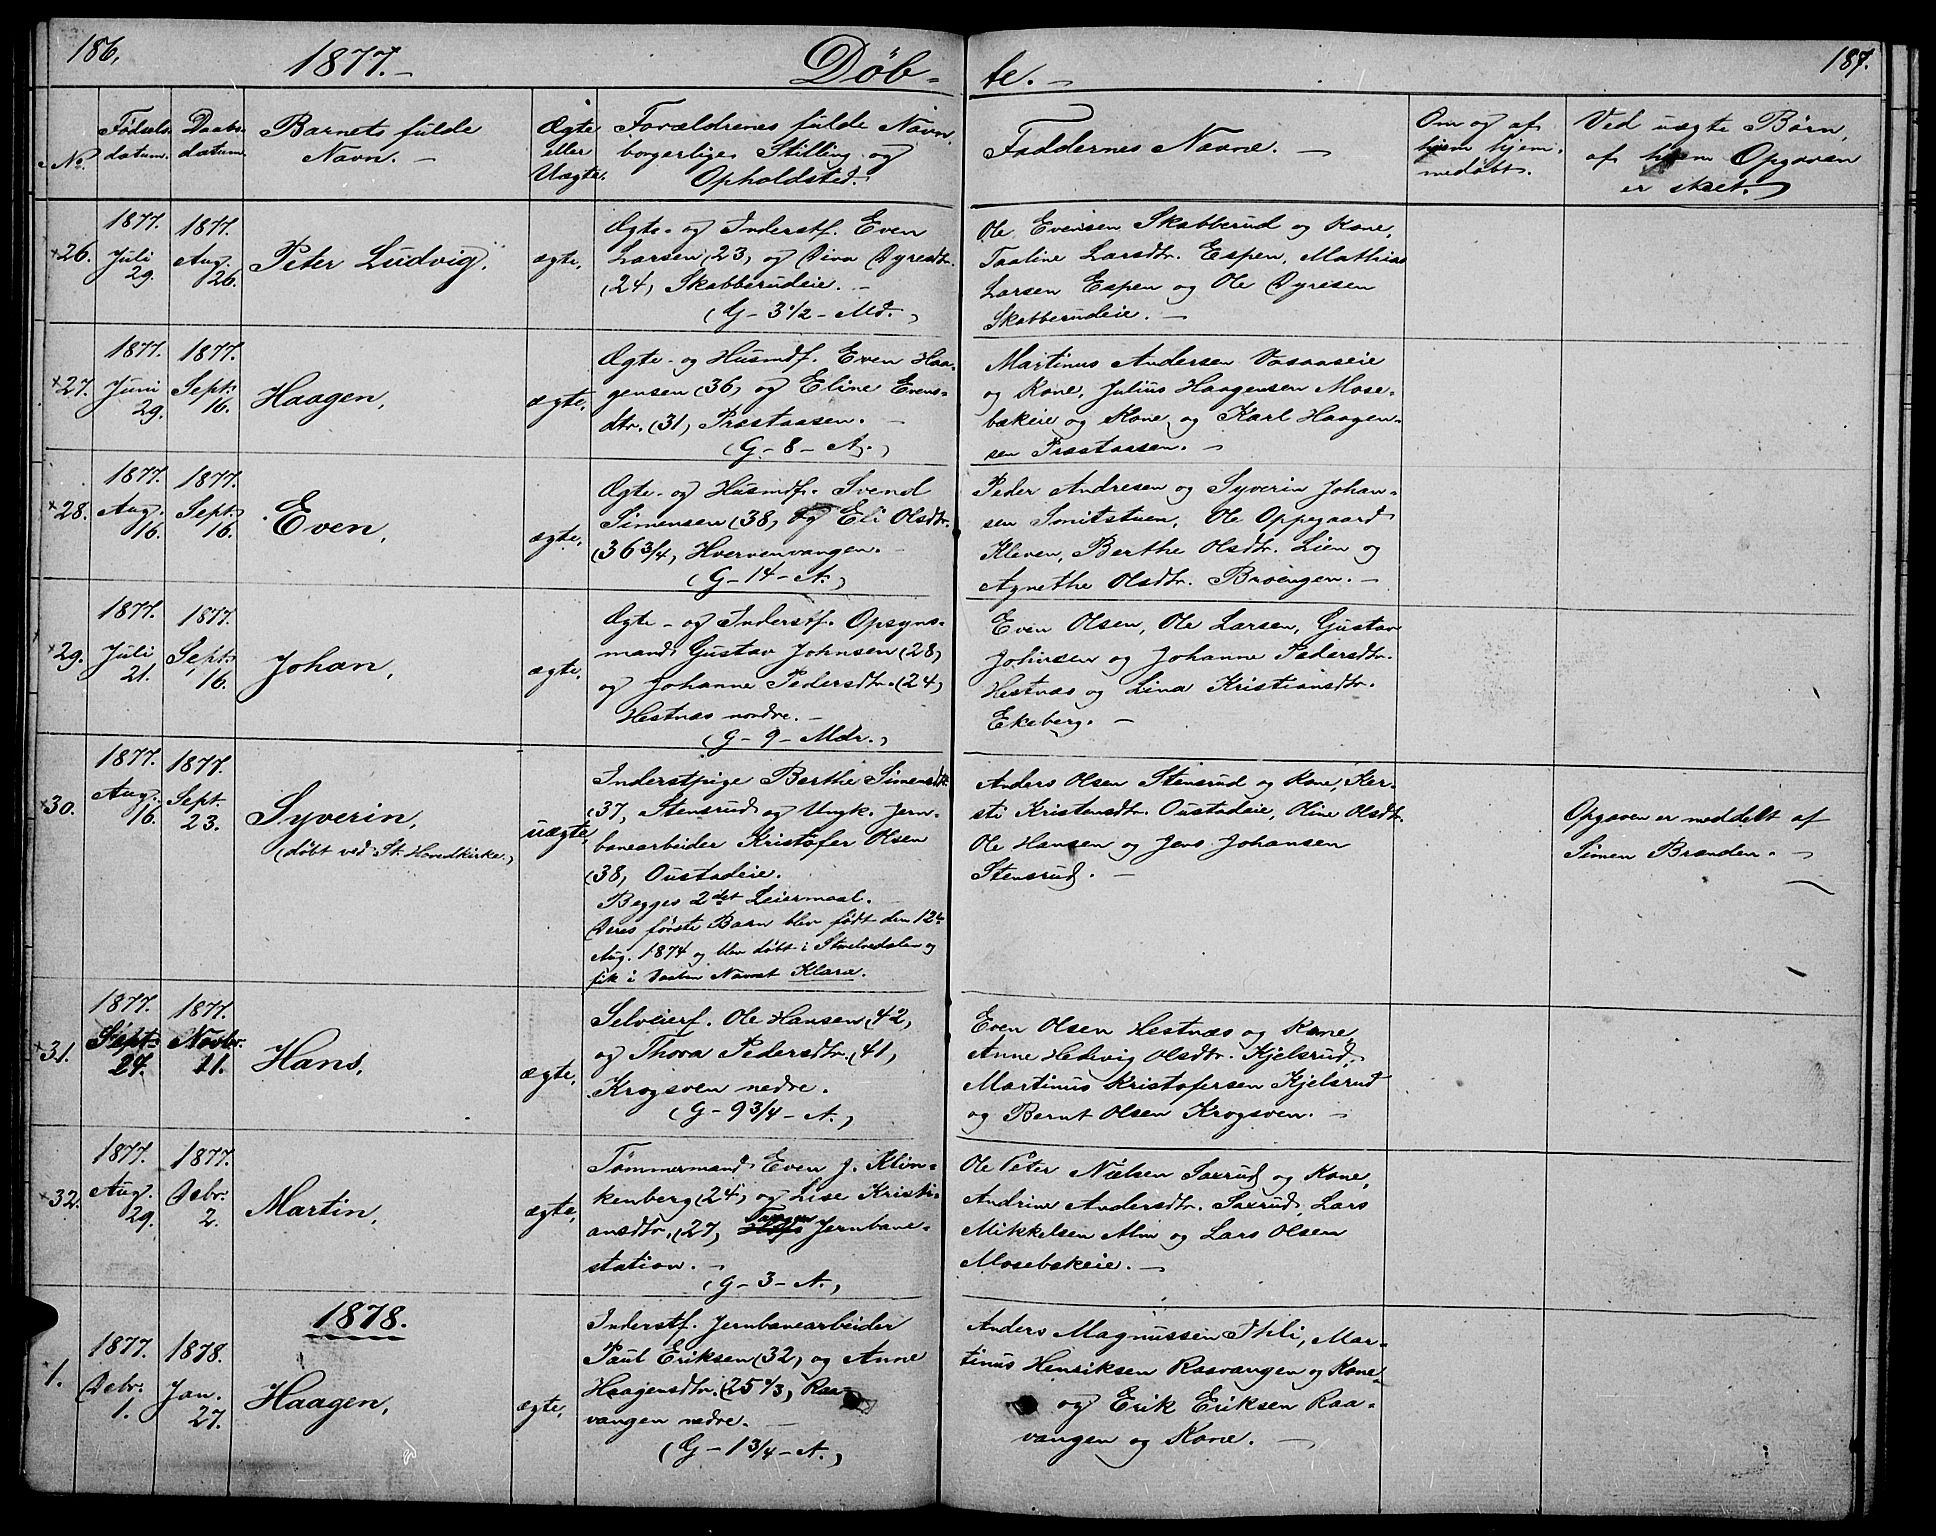 186.
1877.-
Døb-
te.-
187.
No.
Fødsels-
datum.
Daabs-
datum.
Barnets fulde
Navn.-
Ægte
eller
Uægte.
Forældrenes fulde Navn,
borgerlige Stilling og
Opholdsted.
Faddernes Navne.-
Om og af
hvem hjem-
medøbt.
Ved uægte Børn,
af hvem Opgaven
er skeet.
×26.
1877.
Juli
29.
1877.
Aug.
26.
Peter Ludvig,
ægte,
Ægte- og Inderstf. Even
Larsen (23) og Dina Dyresdtr.
(24) Skabberudeie.-
(G-3½-Md.)
Ole Evensen Skabberud og Kone,
Taaline Larsdtr. Espen, Mathias
Larsen Espen og Ole Dyresen
Skabberudeie.-
×27.
1877.
Juni
29.
1877.
Sept.
16.
Haagen,
ægte,
Ægte- og Husmdf. Even Haa-
gensen (36) og Eline Evens-
dtr. (31) Præstaasen.-
(G-8-A.)
Martinus Andersen Vasaaseie
og Kone, Julius Haagensen Mose-
bækeie og Kone og Karl Haagen-
sen Præstaasen.-
×28.
1877.
Aug.
16.
1877.
Sept.
16.
Even,
ægte,
Ægte- og Husmdf. Svend
Simensen (38) og Eli Olsdtr.
(36¾) Hvervenvangen.-
(G-14-A.)
Peder Andresen og Syverin Johan-
sen Smitstuen, Ole Oppegaard
Kleven, Berthe Olsdtr. Lien og
Agnethe Olsdtr. Broengen.-
×29.
1877.
Juli
21.
1877.
Sept.
16.
Johan,
ægte,
Ægte- og Inderstf. Opsyns-
mand Gustav Johnsen (28)
og Johanne Pedersdtr. (24)
Hestnæs nordre.-
(G-9-Mdr.)
Even Olsen, Ole Larsen, Gustav
Johnsen og Johanne Pedersdtr.
Hestnæs og Lina Kristiansdtr.
Ekeberg.-
×30.
1877.
Aug.
16.
1877.
Sept.
23.
Syverin,
(døbt ved St. Hovedkirke.)
uægte,
Inderstpige Berthe Simensdtr.
(37) Stensrud og Ungk. Jern-
banearbeider Kristofer Olsen
(38) Oustadeie.
Begges 2det Leiermaal.
Deres første Barn blev født den 12te
Aug. 1874 og blev døbt i Stuelvedalen og
fik i Daaben Navnet Klara.
Anders Olsen Stensrud og Kone, Ker-
sti Kristensdtr. Oustadeie, Oline Olsdtr.
Ole Hansen og Jens Johansen
Stensrud.-
Opgaven er meddelt af
Simen Brænden.-
×31.
1877.
Sept.
27.
1877.
Novbr.
11.
Hans,
ægte,
Selveierf. Ole Hansen (42)
og Thora Pedersdtr. (41)
Krogsven nedre.
(G-9¾-A.)
Even Olsen Hestnæs og Kone,
Anne Hedvig Olsdtr. Kjelsrud,
Martinus Kristofersen Kjelsrud
og Bernt Olsen Krogsven.-
×32.
1877.
Aug.
29.
1877.
Debr.
2.
Martin,
ægte,
Tømmermand Even J. Klin-
kenberg (24) og Lise Kristi-
ansdtr. (27) Tangen Jernbane-
station.-
(G-3-A.)
Ole Peter Nielsen Saxrud og Kone,
Andrine Andersdtr. Saxrud, Lars
Mikkelsen Alm og Lars Olsen
Mosebækeie.-
1878.
1.
1877.
Debr.
1.
1878.
Jan.
27.
Haagen,
ægte,
Inderstf. Jernbanearbeider
Paul Eriksen (32) og Anne
Haagensdtr. (25⅓) Raa-
vangen nedre.-
(G-1¾-A.)
Anders Magnussen Thli, Mar-
tinus Henriksen Raavangen og Kone
og Erik Eriksen Raa-
vangen og Kone.-